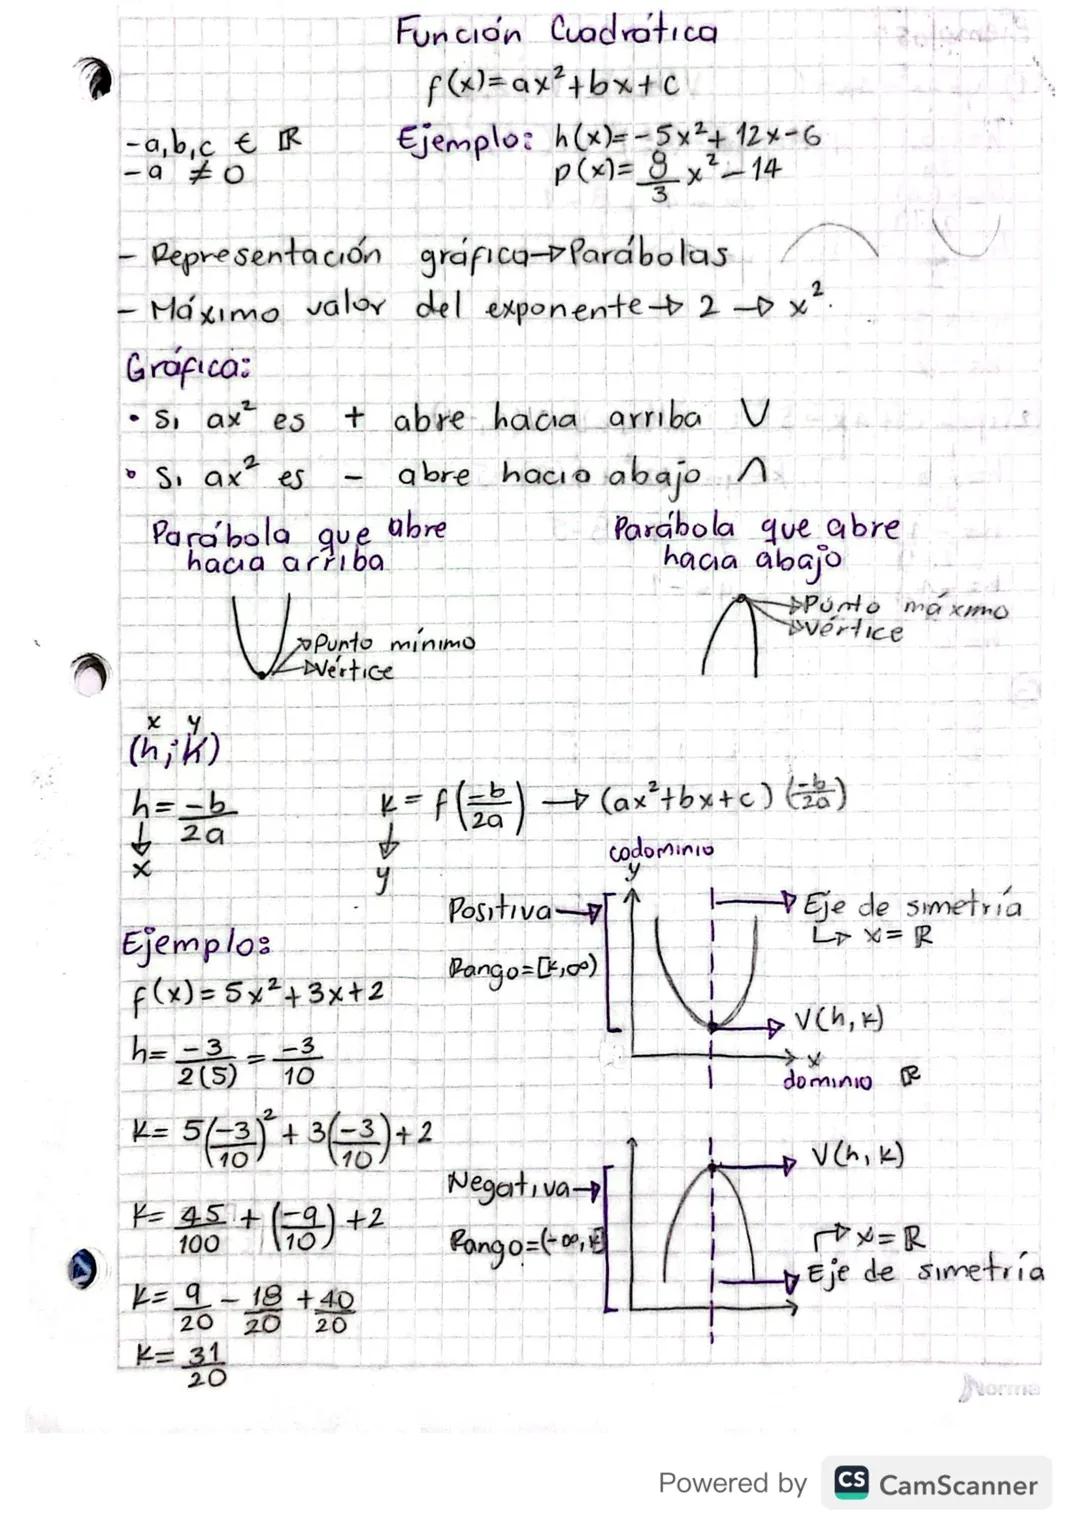 Función Cuadrática
f(x)=ax²+bx+c
-a,b,c ∈ ℝ
-a ≠ 0
Ejemplo: h(x)=-5x²+12x-6
p(x)= 8/3 x²-14
- Representación gráfica→Parábolas
- Máximo valor del exponente → 2 → x².
Gráfica:
• Si ax² es + abre hacia arriba ∪
• Si ax² es - abre hacia abajo ∩
Parábola que abre
hacia arriba
Punto mínimo
Vértice
Parábola que abre
hacia abajo
Punto máximo
Vértice
x y
(h;k)
h= -b/2a
↓
x
k = f(-b/2a) → (ax²+bx+c) (-b/2a)
↓
y
Ejemplo:
f(x)=5x²+3x+2
h= -3/2(5) = -3/10
k= 5(-3/10)²+3(-3/10)+2
k= 45/100 + (-9/10)+2
k= 9/20 - 18/20 + 40/20
k= 31/20
codominio
y
Positiva→
Rango=[k,∞)
→ Eje de simetría
↳ x= ℝ
V(h,k)
x
dominio ℝ
Negativa→
Rango=(-∞,k]
V(h,k)
x= ℝ
Eje de simetría
Norma
Powered by CS CamScanner